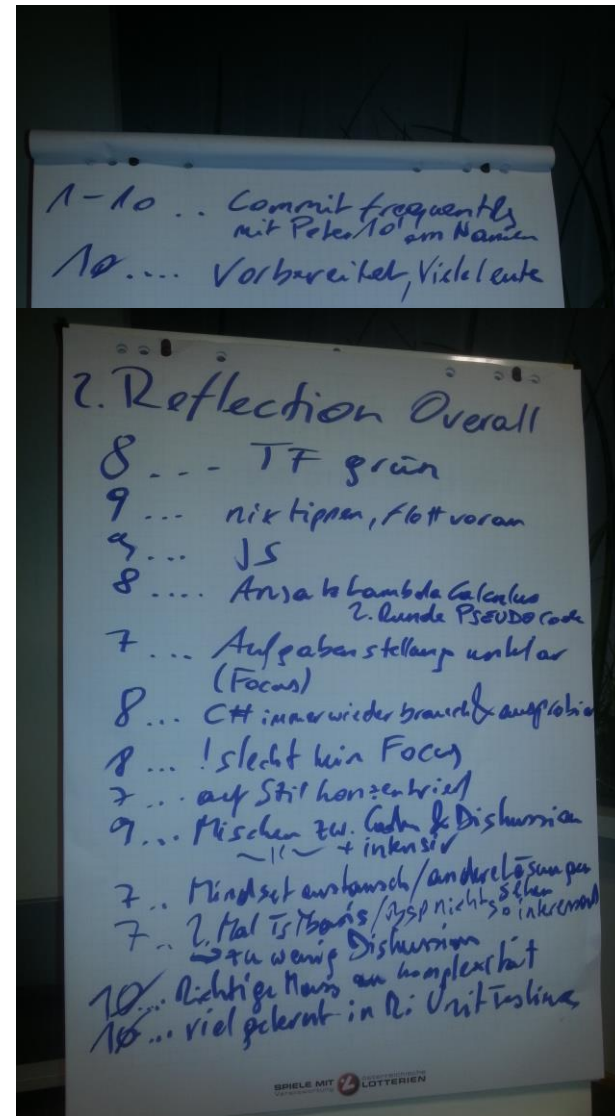 1-10 .. Commit frequently
mit Peter 10 am Namen
10.... Vorbereitet, Viele leute
2. Reflection Overall
8 ... TF grün
9 ... nix tippen, flott voran
9 ... JS
8 .... Ansatz Lambda Calculus
2. Runde PSEUDO Code
7 ... Aufgabenstellung unklar
(Focus)
8 ... C# immer wieder &
8 ... ! slecht kein Focus
7 ... auf Stil konzentriert
9 ... Mischen zw. & Diskussion
+ intensiv
7 .. Mindset austausch/andere Lösungen
sehen
7 .. 2. Mal /Bsp nicht so interessant
→ zu wenig Diskussion
10 ... Richtige Mass an komplexität
10 ... viel gelernt in Ri Unit Testing
SPIELE MIT Verantwortung. österreichische LOTTERIEN